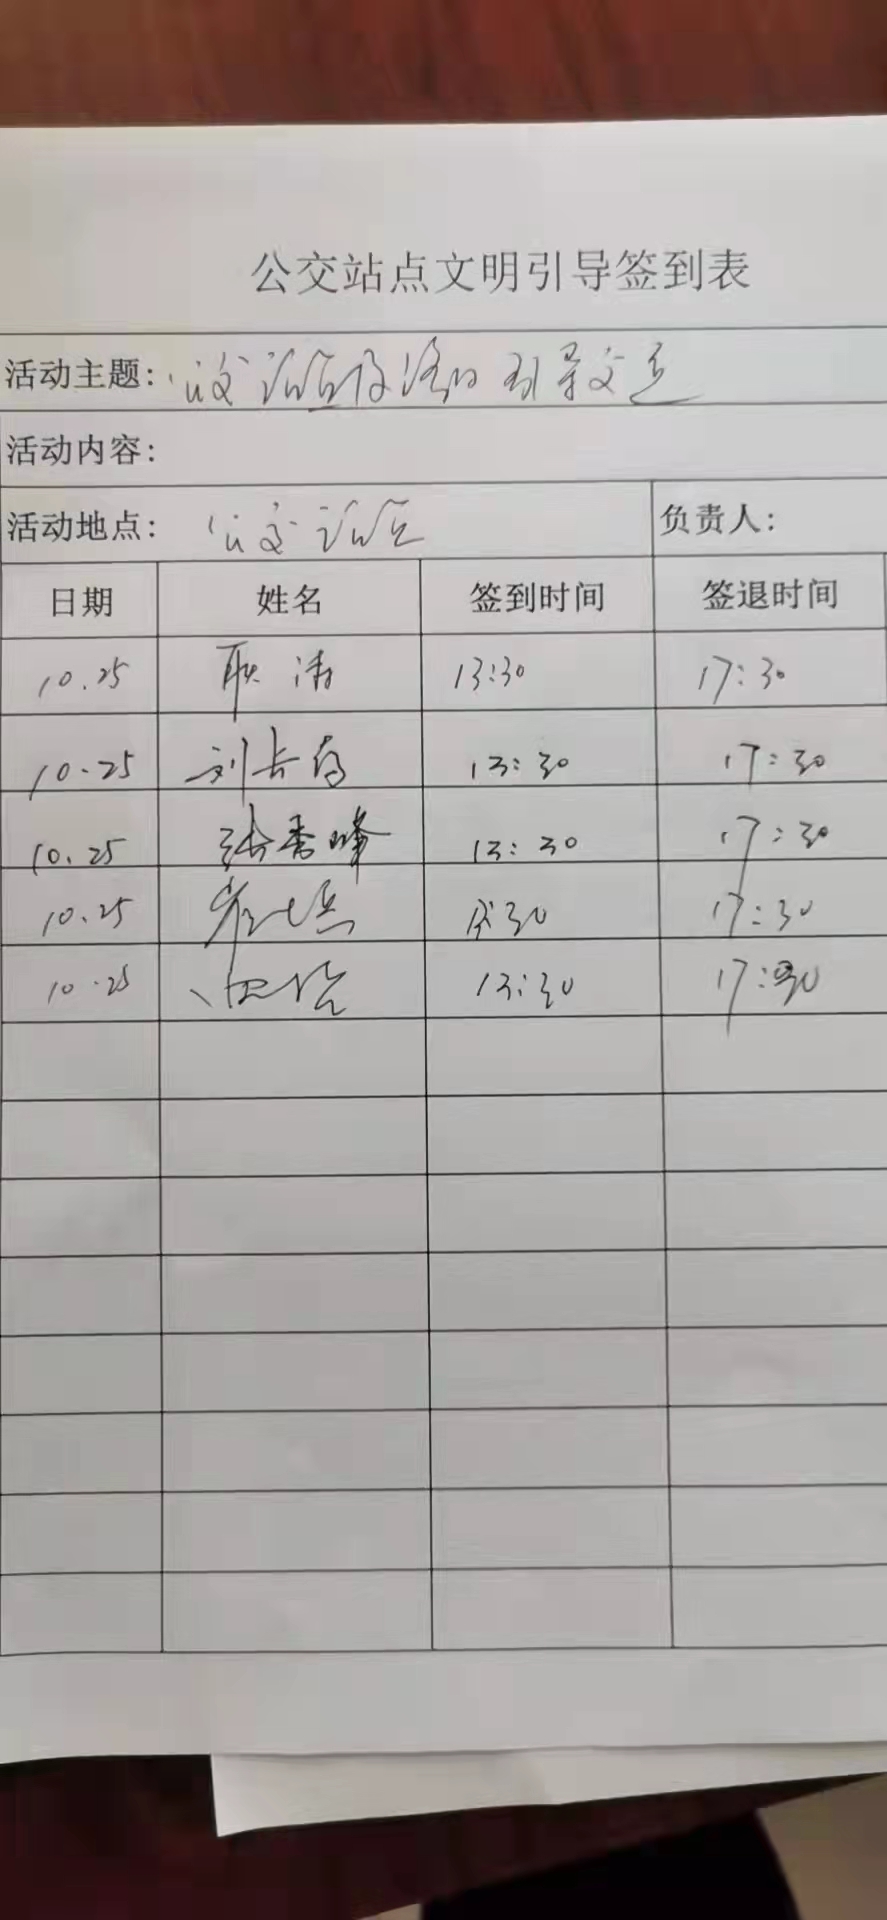 公交站点文明引导签到表
活动主题：公交站点及路口引导交通
活动内容：
活动地点：公交站点 负责人：
日期 姓名 签到时间 签退时间
10.25 耿涛 13:30 17:30
10.25 刘长 13:30 17:30
10.25 张秀峰 13:30 17:30
10.25 13:30 17:30
10.25 13:30 17:30